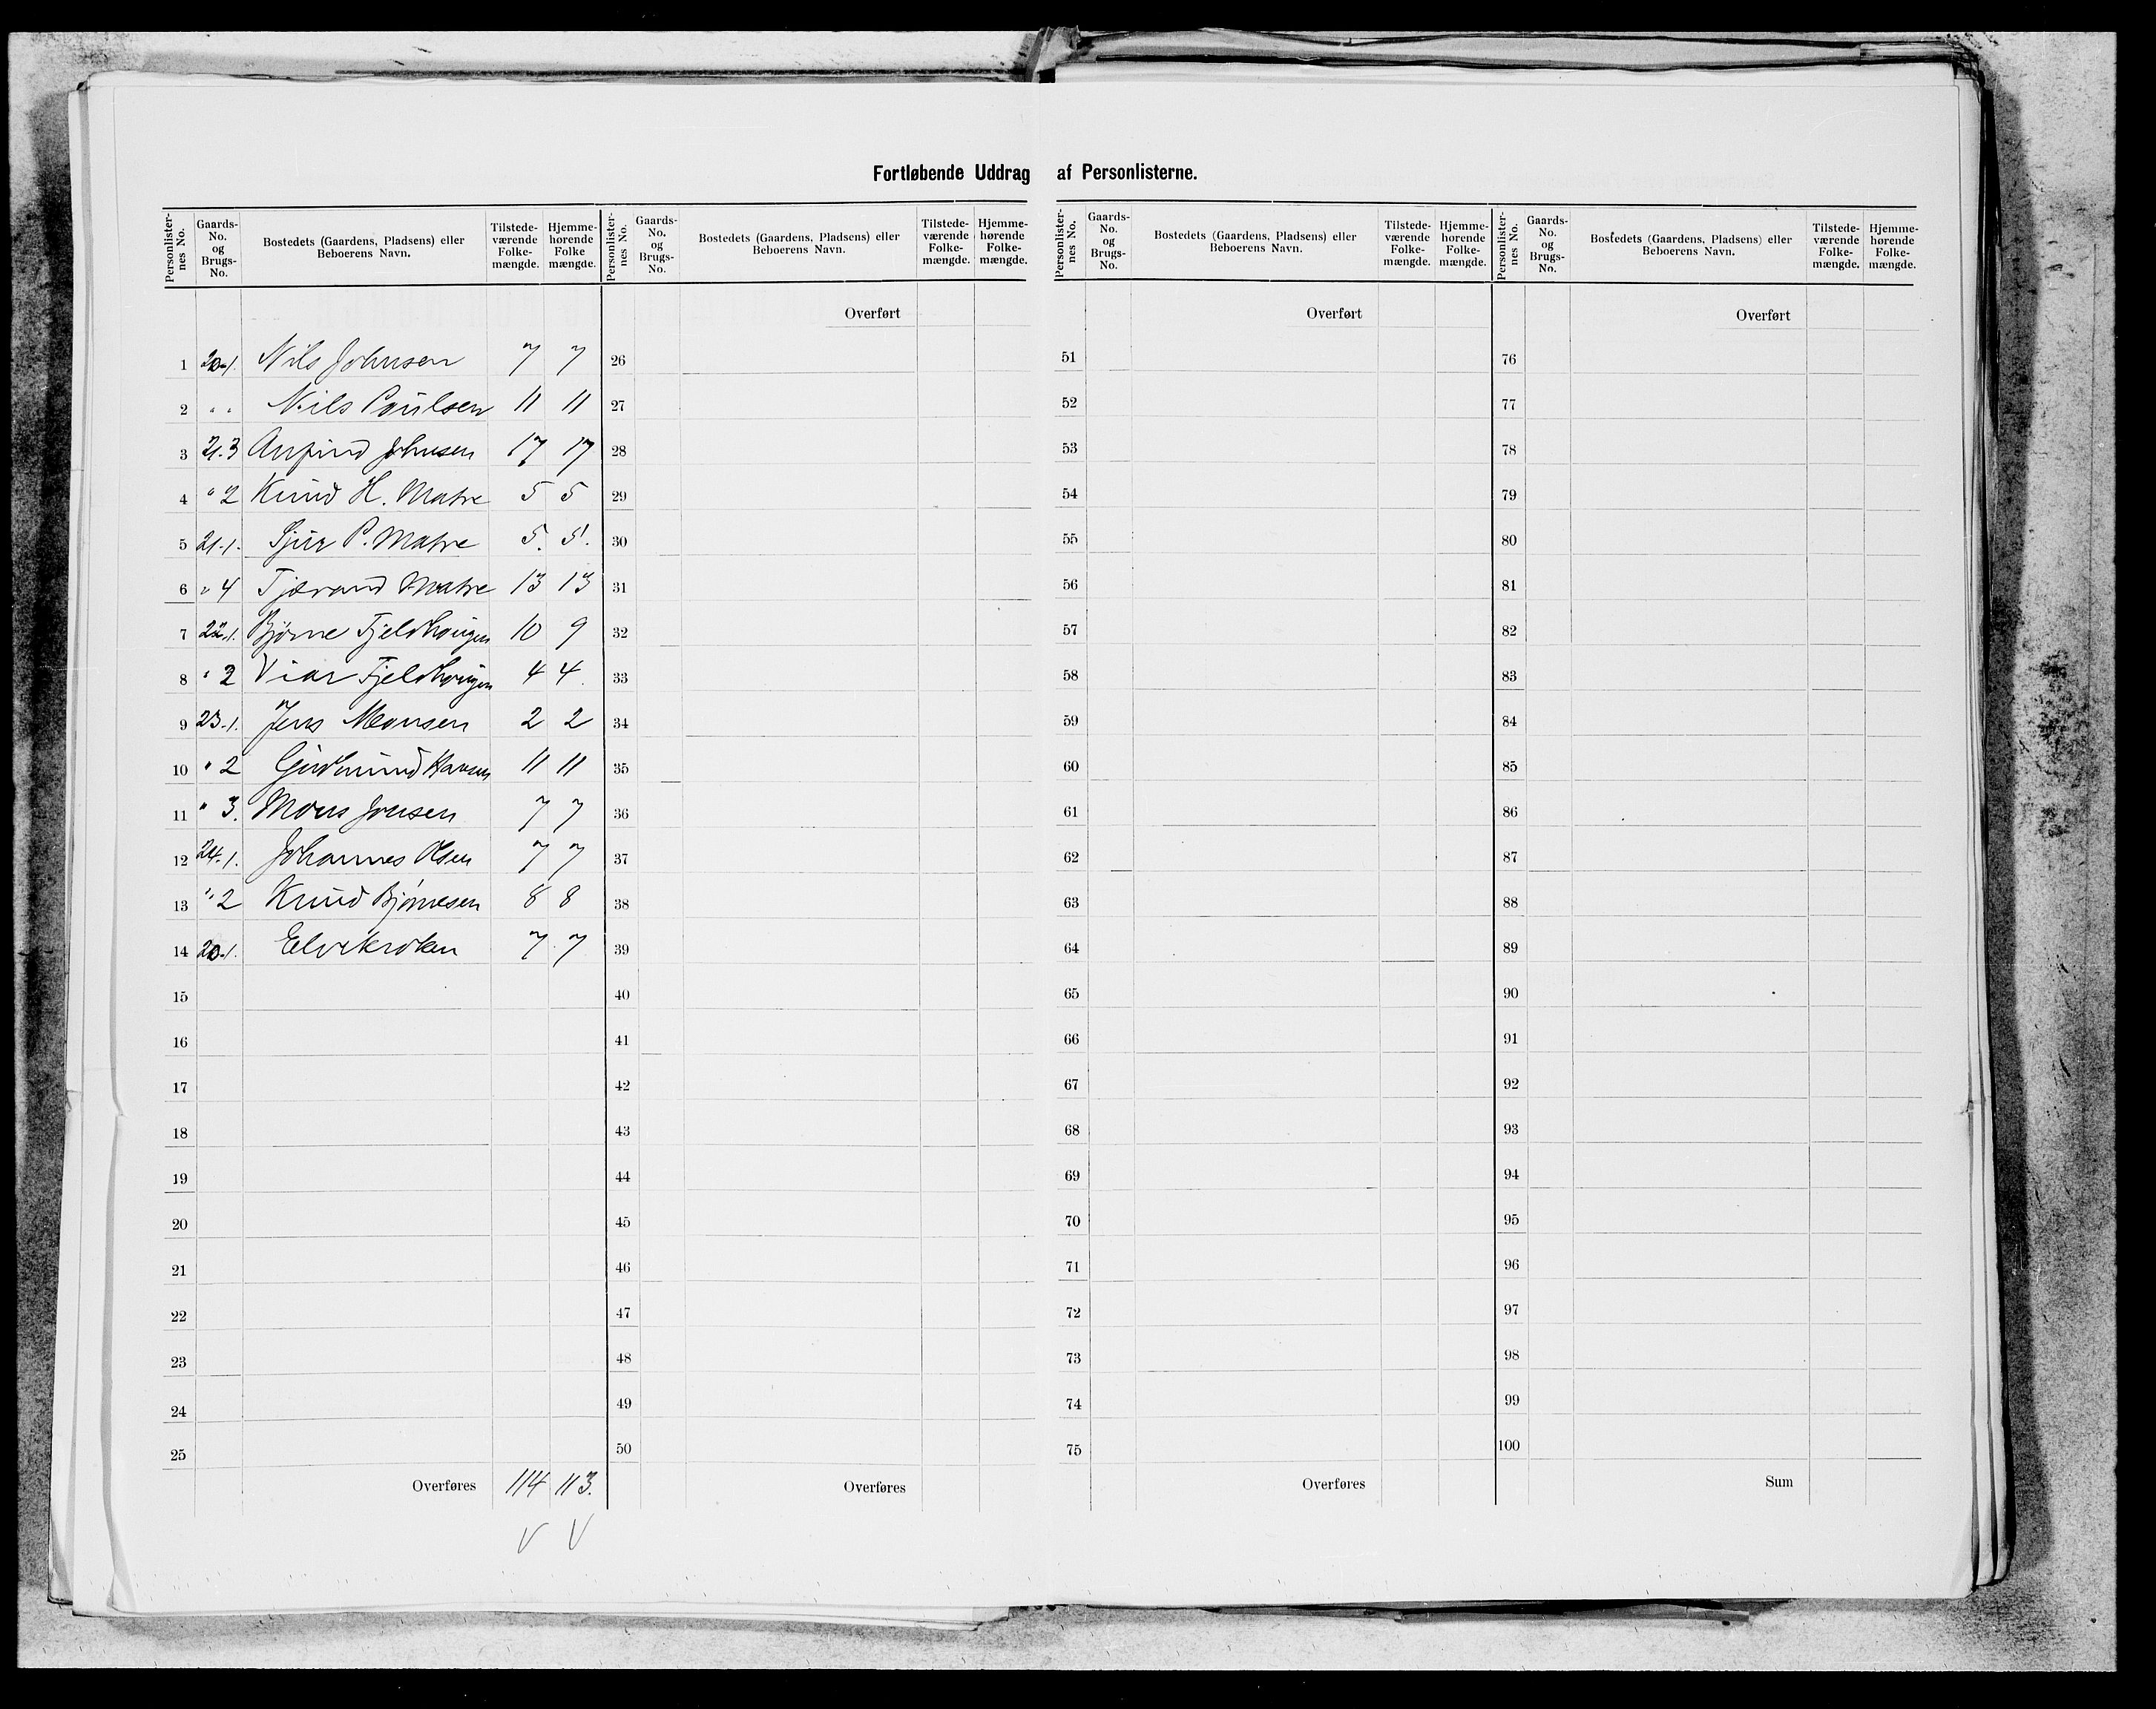 Fortløbende Uddrag af Personlisterne.
Personlisternes No. Gaards-No. og Brugs-No. Bostedets (Gaardens, Pladsens) eller Beboerens Navn. Tilstedeværende Folkemængde. Hjemmehørende Folke mængde.
1 20-1. Nils Johnsen 7 7
2 " " Nils Poulsen 11 11
3 21.3 Anfind Johnsen 17 17
4 " 2 Knud H. Matre 5 5
5 21.1. Sjur P. Matre 5. 5.
6 " 4 Tjærand Matre 13 13
7 22.1. Bjørne Fjeldhougen 10 9
8 " 2 Viar Fjeldhougen 4 4.
9 23.1. Jens Monsen 2 2
10 " 2 Gudmund Hansen 11 11
11 " 3. Mons Jonsen 7 7
12 24.1. Johannes Olsen 7 7
13 " 2 Knud Bjørnesen 8 8
14 20-1. Elvekroken 7 7
15
16
17
18
19
20
21
22
23
24
25
Overføres 114 113.
V V
Personlisternes No. Gaards-No. og Brugs-No. Bostedets (Gaardens, Pladsens) eller Beboerens Navn. Tilstedeværende Folkemængde. Hjemmehørende Folkemængde.
Overført
26
27
28
29
30
31
32
33
34
35
36
37
38
39
40
41
42
43
44
45
46
47
48
49
50
Overføres
Personlisternes No. Gaards-No. og Brugs-No. Bostedets (Gaardens, Pladsens) eller Beboerens Navn. Tilstedeværende Folkemængde. Hjemmehørende Folkemængde.
Overført
51
52
53
54
55
56
57
58
59
60
61
62
63
64
65
66
67
68
69
70
71
72
73
74
75
Overføres
Personlisternes No. Gaards-No. og Brugs-No. Bostedets (Gaardens, Pladsens) eller Beboerens Navn. Tilstedeværende Folkemængde. Hjemmehørende Folkemængde.
Overført
76
77
78
79
80
81
82
83
84
85
86
87
88
89
90
91
92
93
94
95
96
97
98
99
100
Sum